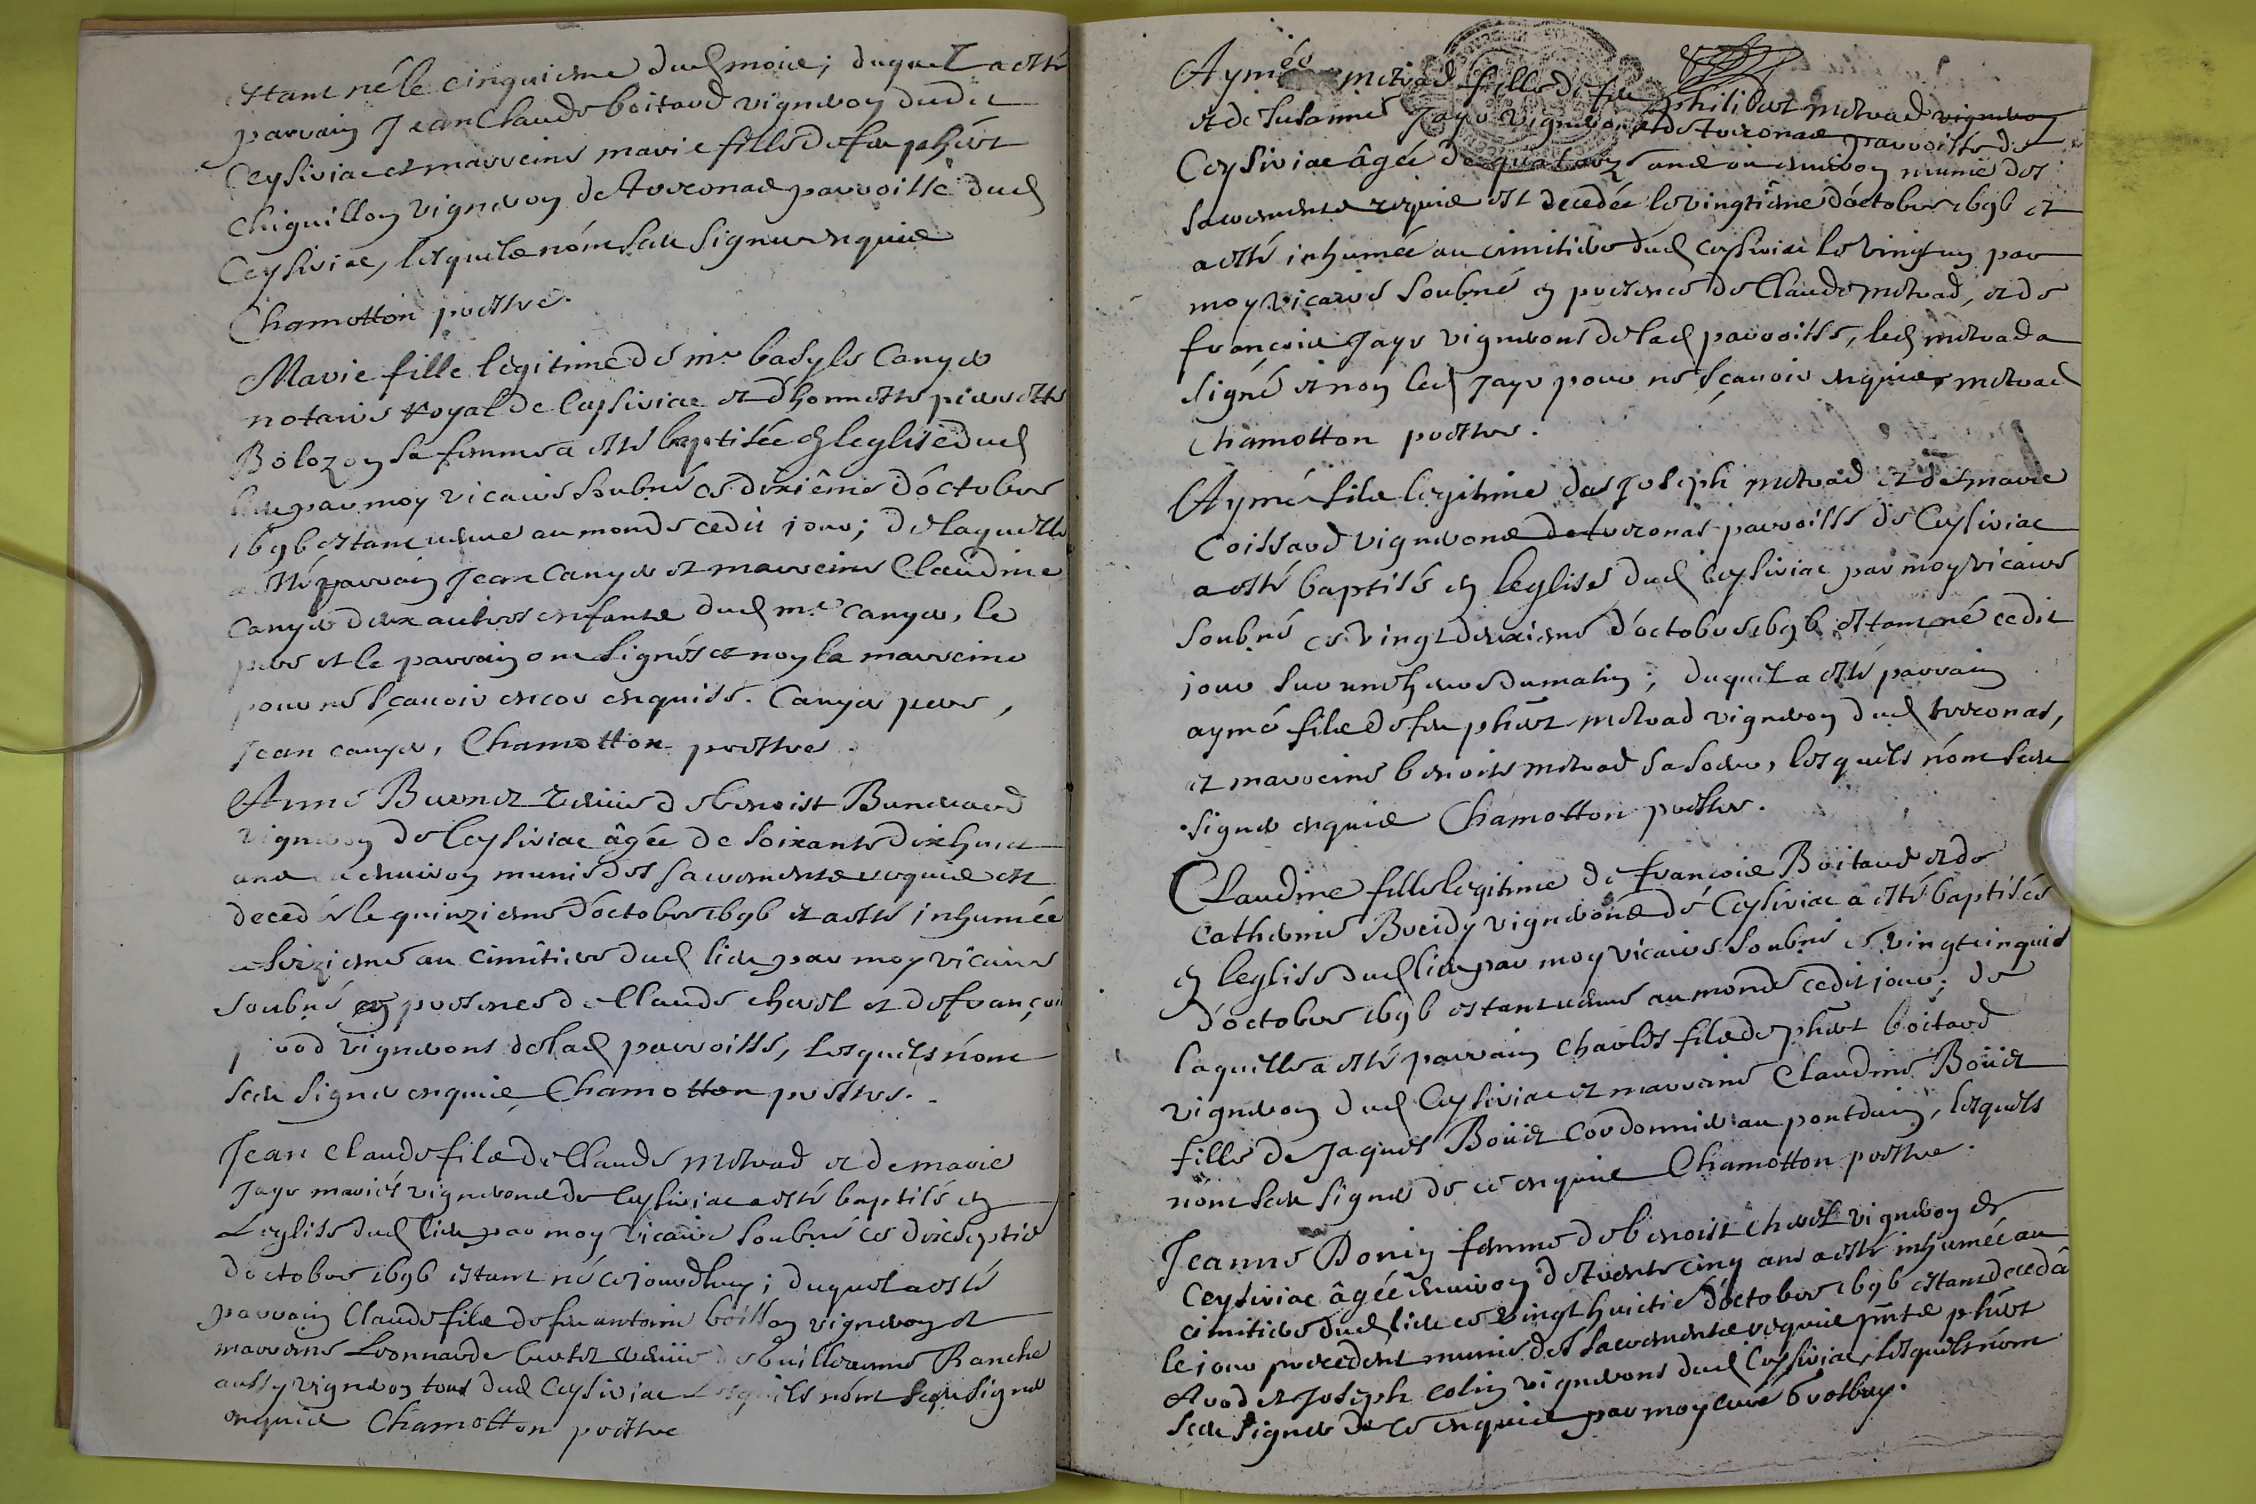 estant né le cinquiesme dud mois; duquel a esté
parrain Jean Claude boitard vigneron dudit
Ceysiriac et marreine marie fille de feu phibert
Chiguillon vigneron de Avoronas parroisse dud
Ceysiriac, lesquels n'ont sceu signer enquis
Chamotton prestre.
Marie fille legitime de mre basyle Canyer
notaire royal de Ceysiriac et d'honneste pierrette
Bolozon sa femme a esté baptisée en leglise dud
lieu par moy vicaire soubné ce dixième d'octobre
1696 estant venue au monde cedit jour; de laquelle
a esté parrain Jean Canyer et marreine Claudine
Canyer deux autres enfants dud mre Canyer, le
pere et le parrain ont signés et non la marreine
pour ne sçavoir encor enquise. Canyer pere,
Jean canyer, Chamotton prestre.
Anne Burnet veuve de benoist Bundward
vigneron de Ceysiriac âgée de soixante dix huict
ans environ munie des sacrements requis est
decedée le quinziesme d'octobre 1696 et a esté inhumée
le seiziesme au cimitiere dud lieu par moy vicaire
soubné en presence de Claude chevet et de françois
vod vignerons de lad parroisse, lesquels n'ont
sceu signer enquis Chamotton prestre.
Jean Claude fils de Claude Metrad et de marie
Jayr mariés vignerons de Ceysiriac a esté baptisé en
Leglise dud lieu par moy Vicaire soubné ce dixseptie
d'octobre 1696 estant né cejourdhuy; duquel a esté
parrain Claude fils de feu antoine boisson vigneron et
marreine Leonnarde Curtet veuve de Guilleaume Ranche
aussy vigneron tous dud Ceysiriac Lesquels n'ont sceu signer
enquis Chamotton prestre
Aymée metrad fille de feu philibert metrad vigneron
et de Susanne Jayr vignerons de Avoronas parroisse de
Ceysiriac âgée de quatorze ans ou environ munie des
sacrements requis est decedée le vingtième d'octobre 1696 et
a esté inhumée au cimitiere dud Ceysiriac le vingt un par
moy vicaire soubné en presence de Claude metrad, et de
françois Jayr vignerons de lad parroisse, led metrad a
signé et non led Jayr pour ne sçavoir enquis, metrad
Chamotton prestre.
Aymé fils legitime de Joseph metrad et de marie
Coissard vignerons de Avoronas parroisse de Ceysiriac
a esté baptisé en leglise dud Ceysiriac par moy vicaire
soubné ce vingt deuxiesme d'octobre 1696 estant né cedit
jour sur une heure du matin; duquel a esté parrain
aymé fils de feu phibert metrad vigneron dud Avoronas,
et marreine benoite metrad sa soeur, lesquels n'ont sceu
signer enquis Chamotton prestre.
Claudine fille legitime de françois Boitard et de
Catherine Breidy vignerons de Ceysiriac a esté baptisée
en leglise dud lieu par moy vicaire soubné ce vingtcinquie
d'octobre 1696 estant venue au monde cedit jour; de
laquelle a esté parrain Charles fils de phibert boitard
vigneron dud Ceysiriac et marreine Claudine Boüet
fille de Jaques Boüet Cordonnier au pontdain, lesquels
n'ont sceu signer de ce enquis Chamotton prestre.
Jeanne Bonin femme de benoist chevet vigneron de
Ceysiriac âgée environ de trente cinq ans a esté inhumée au
cimitiere dud lieu ce vingt huictie d'octobre 1696 estant decedé
le jour precedent munie des sacrements requis pnts phibert
Avod et Joseph colin vignerons dud Ceysiriac, lesquels n'ont
sceu signer de ce enquis par moy curé